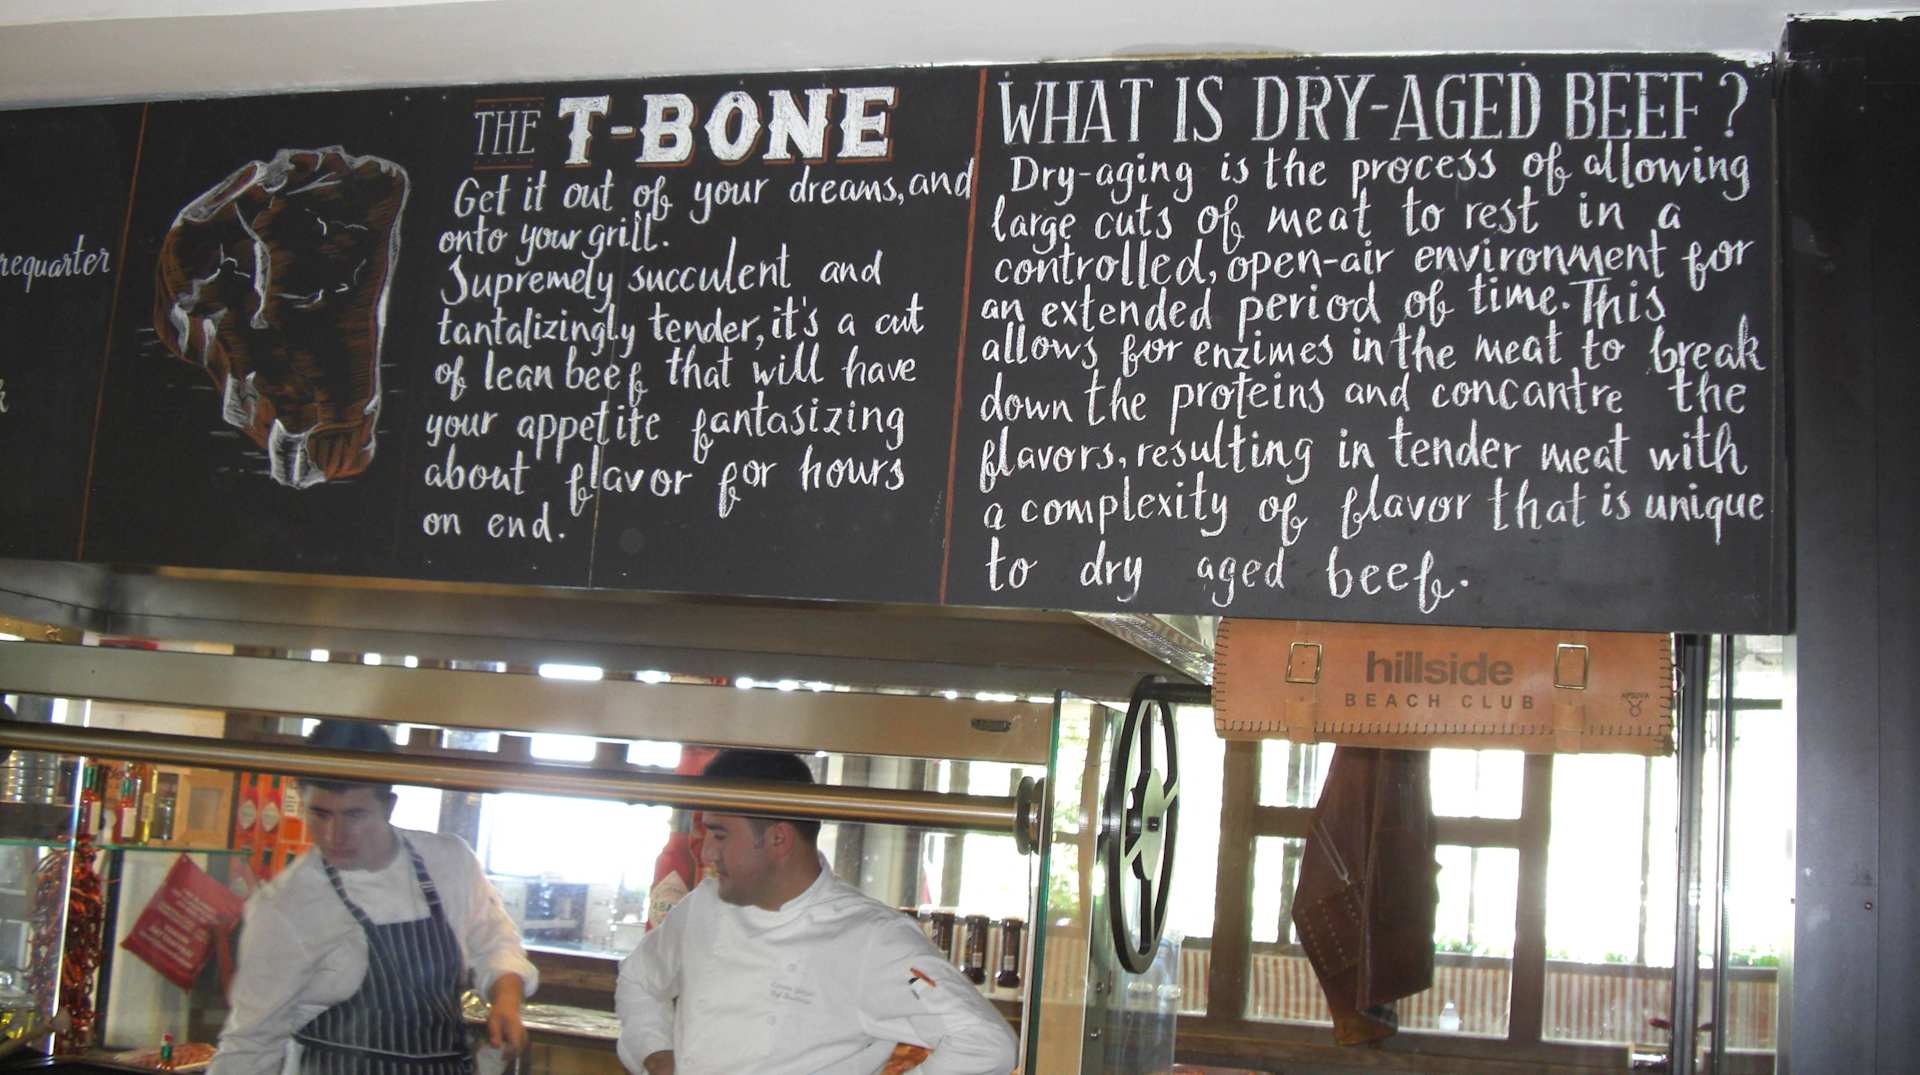 requarter
THE T-BONE
Get it out of your dreams, and
onto your grill.
Supremely succulent and
tantalizingly tender, it's a cut
of lean beef that will have
your appetite fantasizing
about flavor for hours
on end.
WHAT IS DRY-AGED BEEF?
Dry-aging is the process of allowing
large cuts of meat to rest in a
controlled, open-air environment for
an extended period of time. This
allows for enzimes in the meat to break
down the proteins and concantre the
flavors, resulting in tender meat with
a complexity of flavor that is unique
to dry aged beef.
hillside
BEACH CLUB